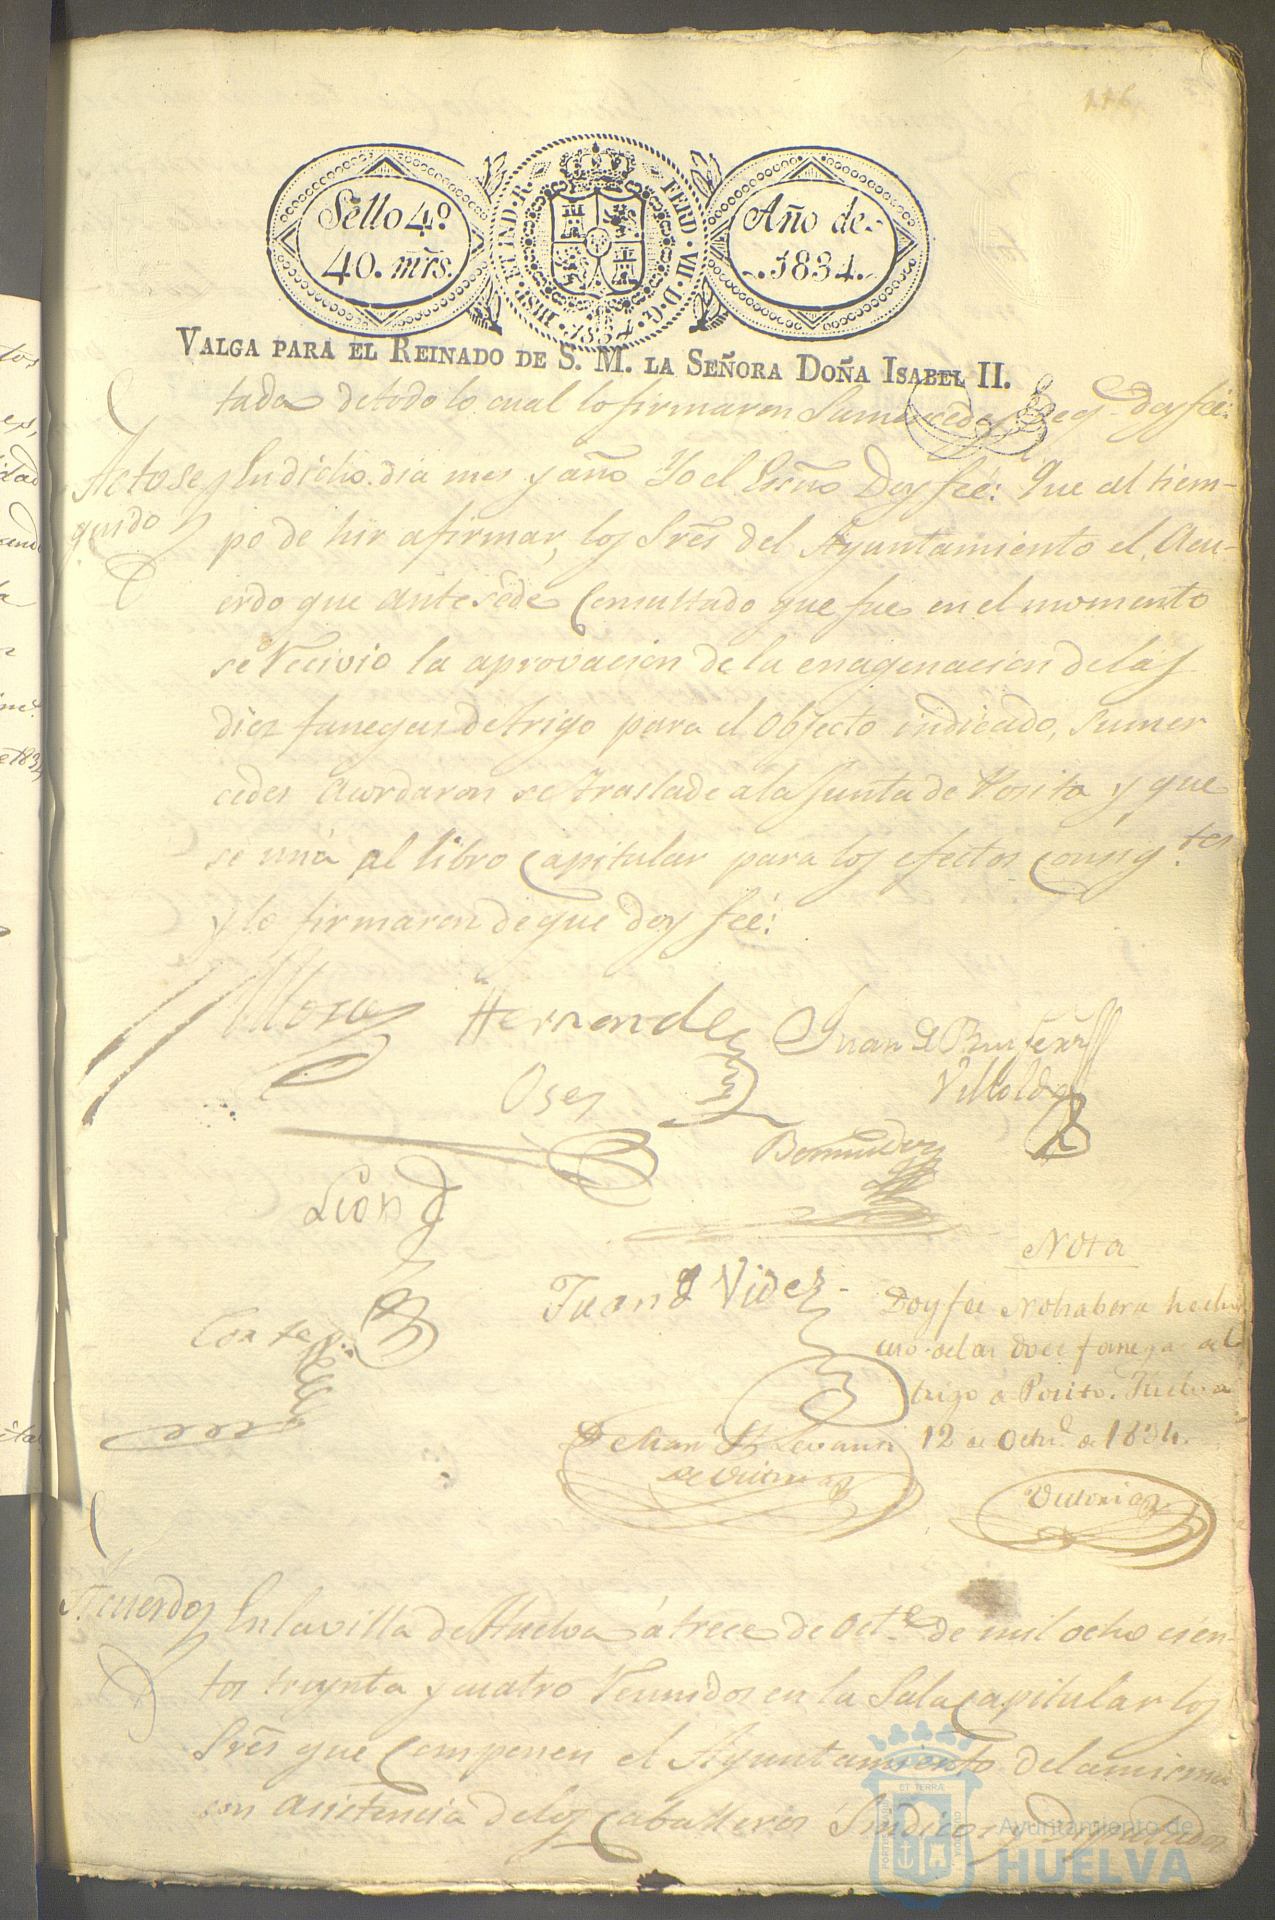 116
Sello 4º
40. mrs.
HISP. ET IND. R. FERD. VII. D. G. 1834
Año de
1834.
VALGA PARA EL REINADO DE S. M. LA SEÑORA DOÑA ISABEL II.
tada de todo lo cual lo firmaron Sumercedes de q. doy feé:
Acto se
guido
En dicho dia mes y año Yo el Escño Doy feé: Que al tiem-
po de hir a firmar, los Sres del Ayuntamiento el Acu-
erdo que antesede Consultado que fue en el momento
se Recivio la aprovacion de la enagenacion de las
diez fanegas de trigo para el Objecto indicado, sumer
cedes Acordaron se traslade a la Junta de Posito y que
se una al libro Capitular para los efectos consigtes
y lo firmaron de que doy feé:
Mora Hernandez Juan de
Oses Villoldo
Bermudez
Leon
Juan Videz
Cortes
Nota
Doy fee No haberse hecho
uso de las doce fanegas de
trigo a Posito. Huelva
12 de Octue de 1834.
de Victoria
Victoria
Acuerdo
En la villa de Huelva á trece de Octe de mil ocho cien-
tos treynta y cuatro Reunidos en la Sala Capitular los
Sres que Componen el Ayuntamiento de la misma
con asistencia de los Caballeros Sindicos y Diputados
Ayuntamiento de
HUELVA